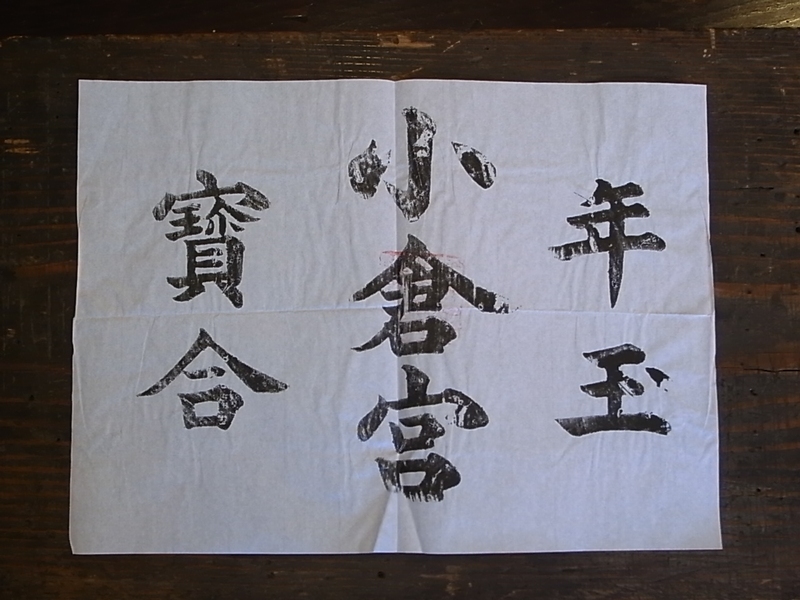 年玉
小倉宮
寳合